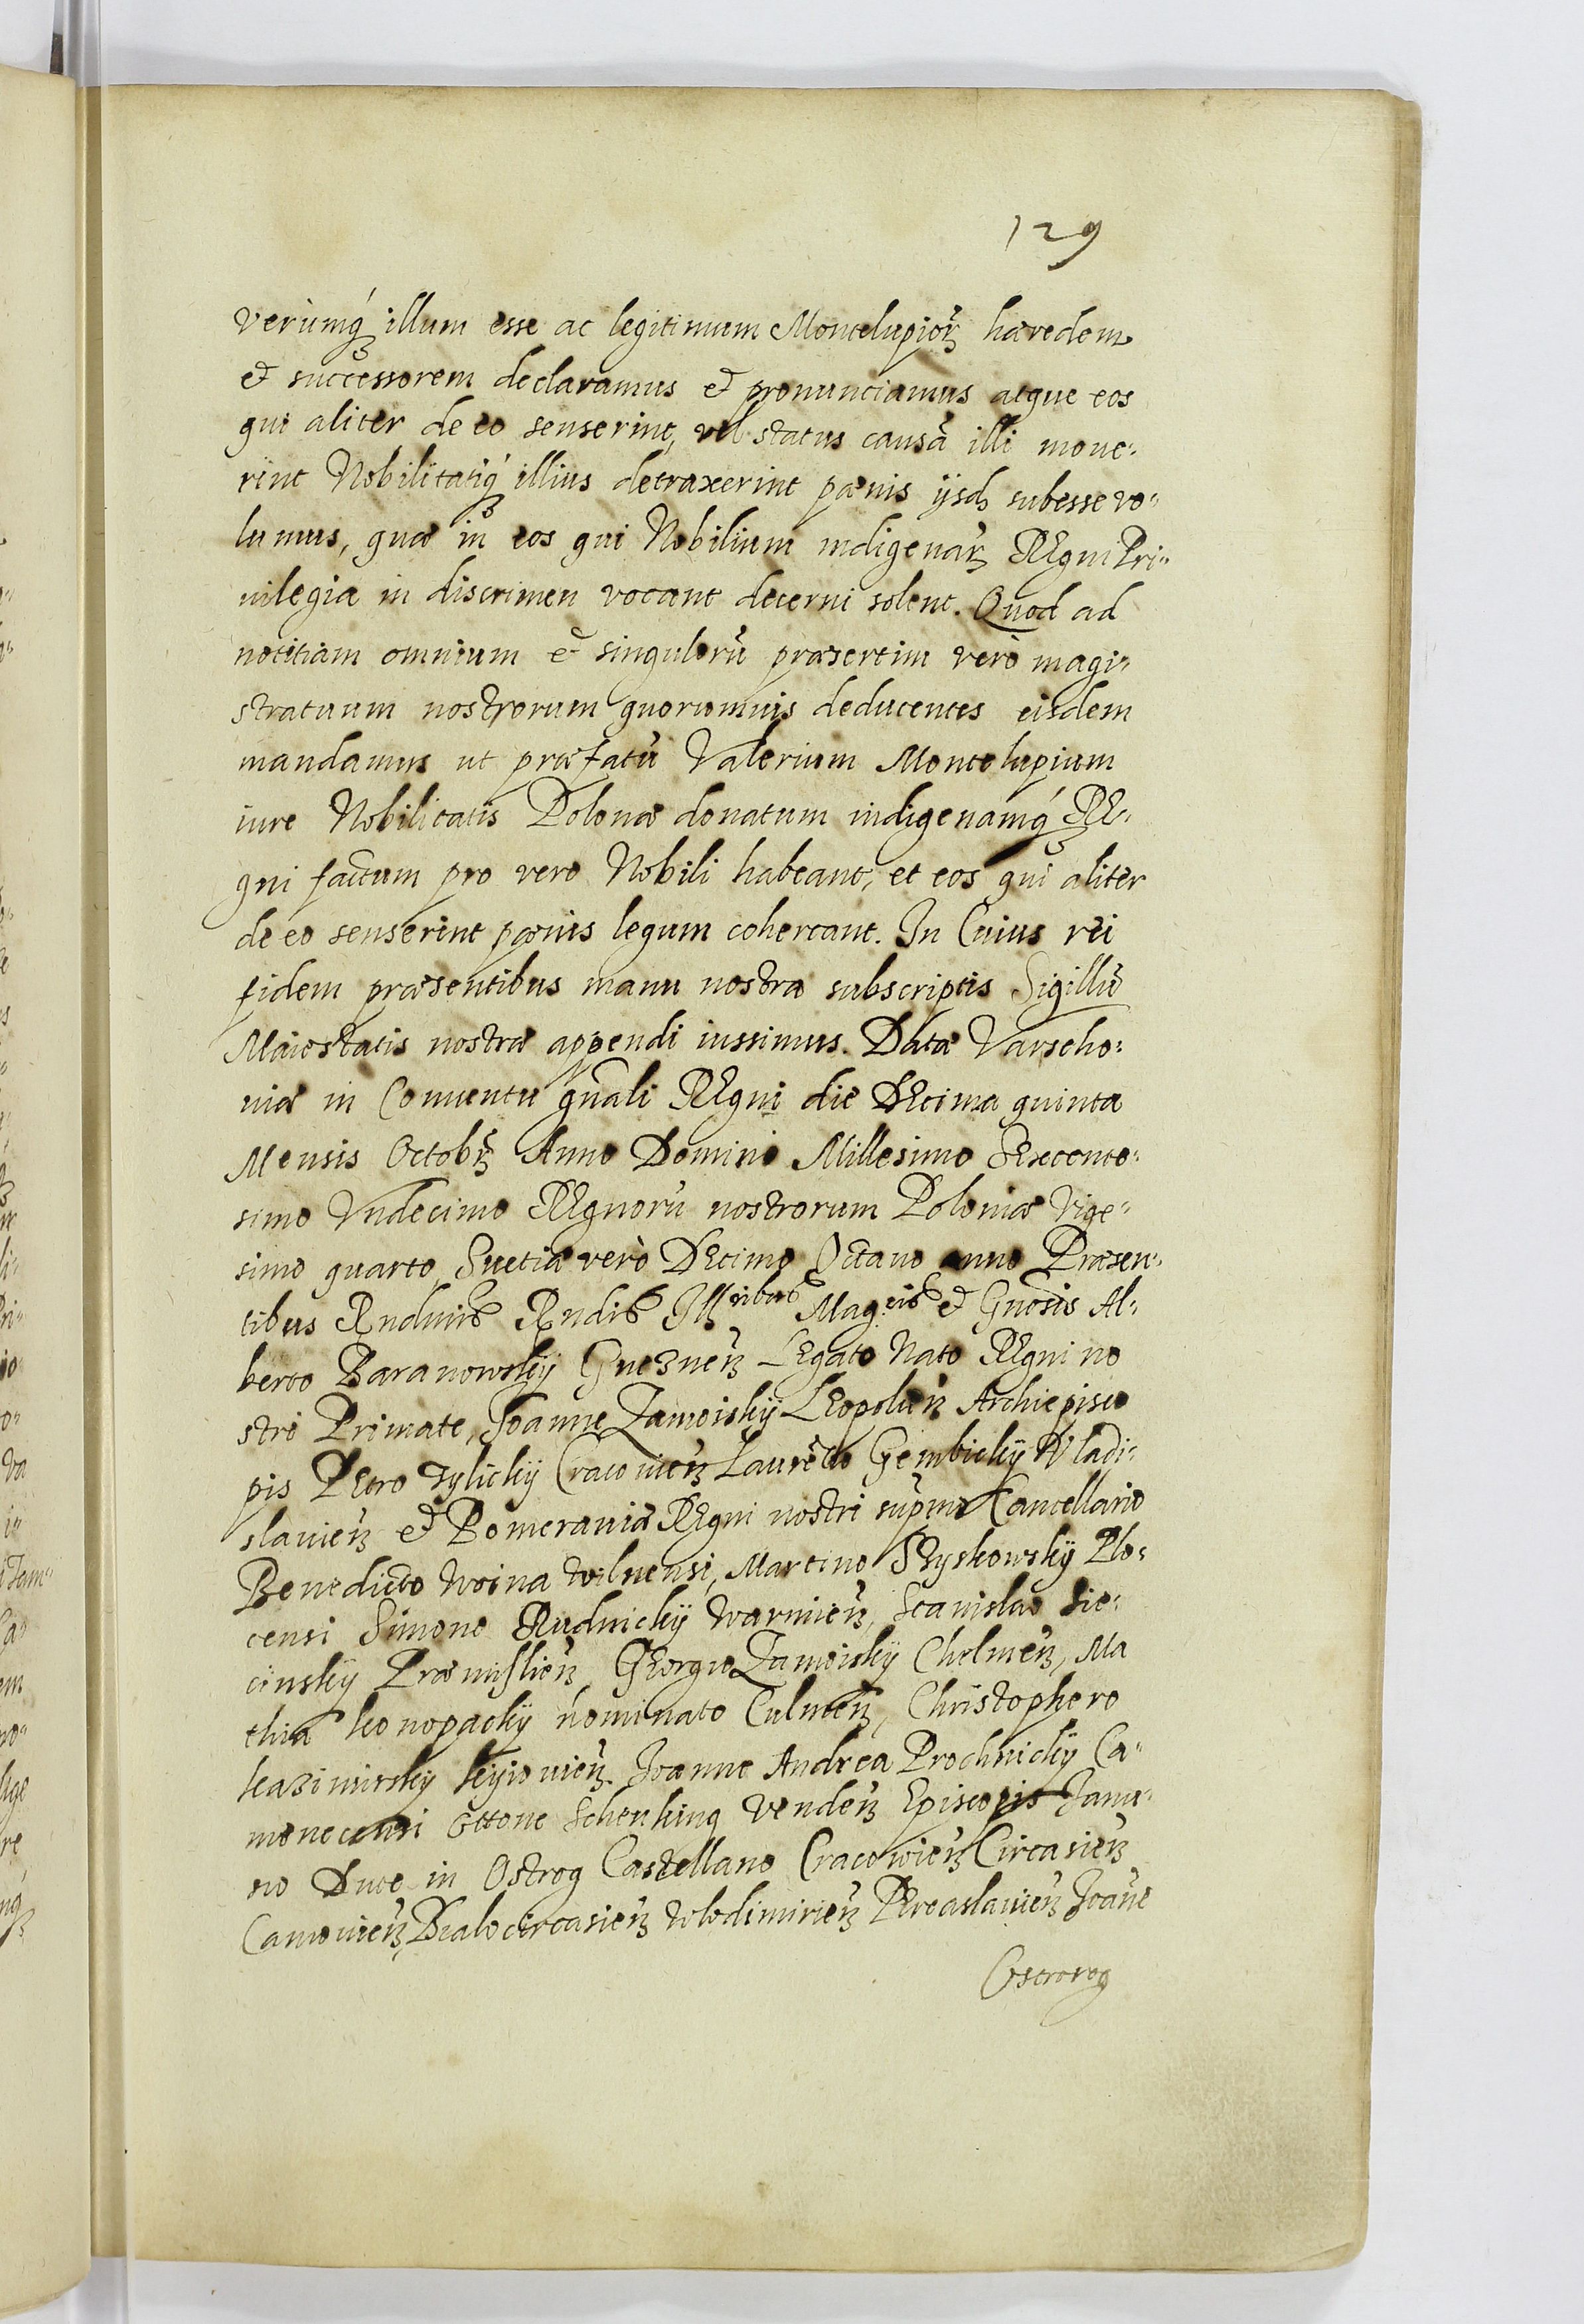 129
verumq́ꝫ illum esse ac legitimum Montelupior̃ꝫ hæredem
et successorem declaramus et pronunciamus atque eos
qui aliter de eo senserint, vel status causã illi moue-
rint Nobilitatiq́ꝫ illius detraxerint pænis ijsdꝫ subesse vo-
lumus, quæ in eos qui Nobilium indigenar̃ꝫ REgni Pri-
uilegia in discrimen vocant decerni solent. Quod ad
notitiam omnium et singulorũ præsertim verò magi-
stratuum nostrorum quorumuis deducentes eisdem
mandamus ut præfatũ Valerium Montelupium
iure Nobilitatis Polonæ donatum indigenamq́ꝫ RE-
gni factum pro vero Nobili habeant, et eos qui aliter
de eo senserint pœnis legum coherceant. In Cuius rei
fidem præsentibus manu nostra subscriptis Sigillũ
Maiestatis nostræ appendi iussimus. Datæ Varscho-
uiæ in Conuentu gñali REgni die DEcima quinta
Mensis Octobr̃ꝫ Anno Domini Millesimo SExcente-
simo Vndecimo REgnorũ nostrorum Poloniæ Vige-
simo quarto, Suetiæ verò DEcimo Octauo anno Præsen-
tibus Rndmis Rndis Illribus Magcis et Gnosis Al-
berto Baranowskÿ Gneznen̄ꝫ LEgato Nato REgni no
stri Primate, Joanne Zamoiskÿ LEopolien̄ꝫ Archiepisco
pis PEtro Tylickÿ Cracouien̄ꝫ Laurẽtio Gembickÿ Vladi-
slauien̄ꝫ et Pomeraniæ REgni nostri supmo Cancellario
Benedicto Woina Wilnensi, Martino SZyskowskÿ Plo-
censi Simone RUdnickÿ Warmien̄ꝫ, Stanislao Sie-
cinskÿ Præmislien̄ꝫ GEorgio Zamoiskÿ Chelmen̄ꝫ, Ma
thia Konopackÿ nominato Culmen̄ꝫ, Christophero
Kazimirskÿ Kyiouien̄ꝫ. Joanne Andrea Prochnickÿ Ca-
menecensi Ottone Schenking Venden̄ꝫ Episcopis Janu-
sio Duce in Ostrog Castellano Cracowien̄ꝫ Circasien̄ꝫ
Canouien̄ꝫ, BIalocircasien̄ꝫ Wlodimirien̄ꝫ PEreaslauien̄ꝫ Joañe
Ostrorog